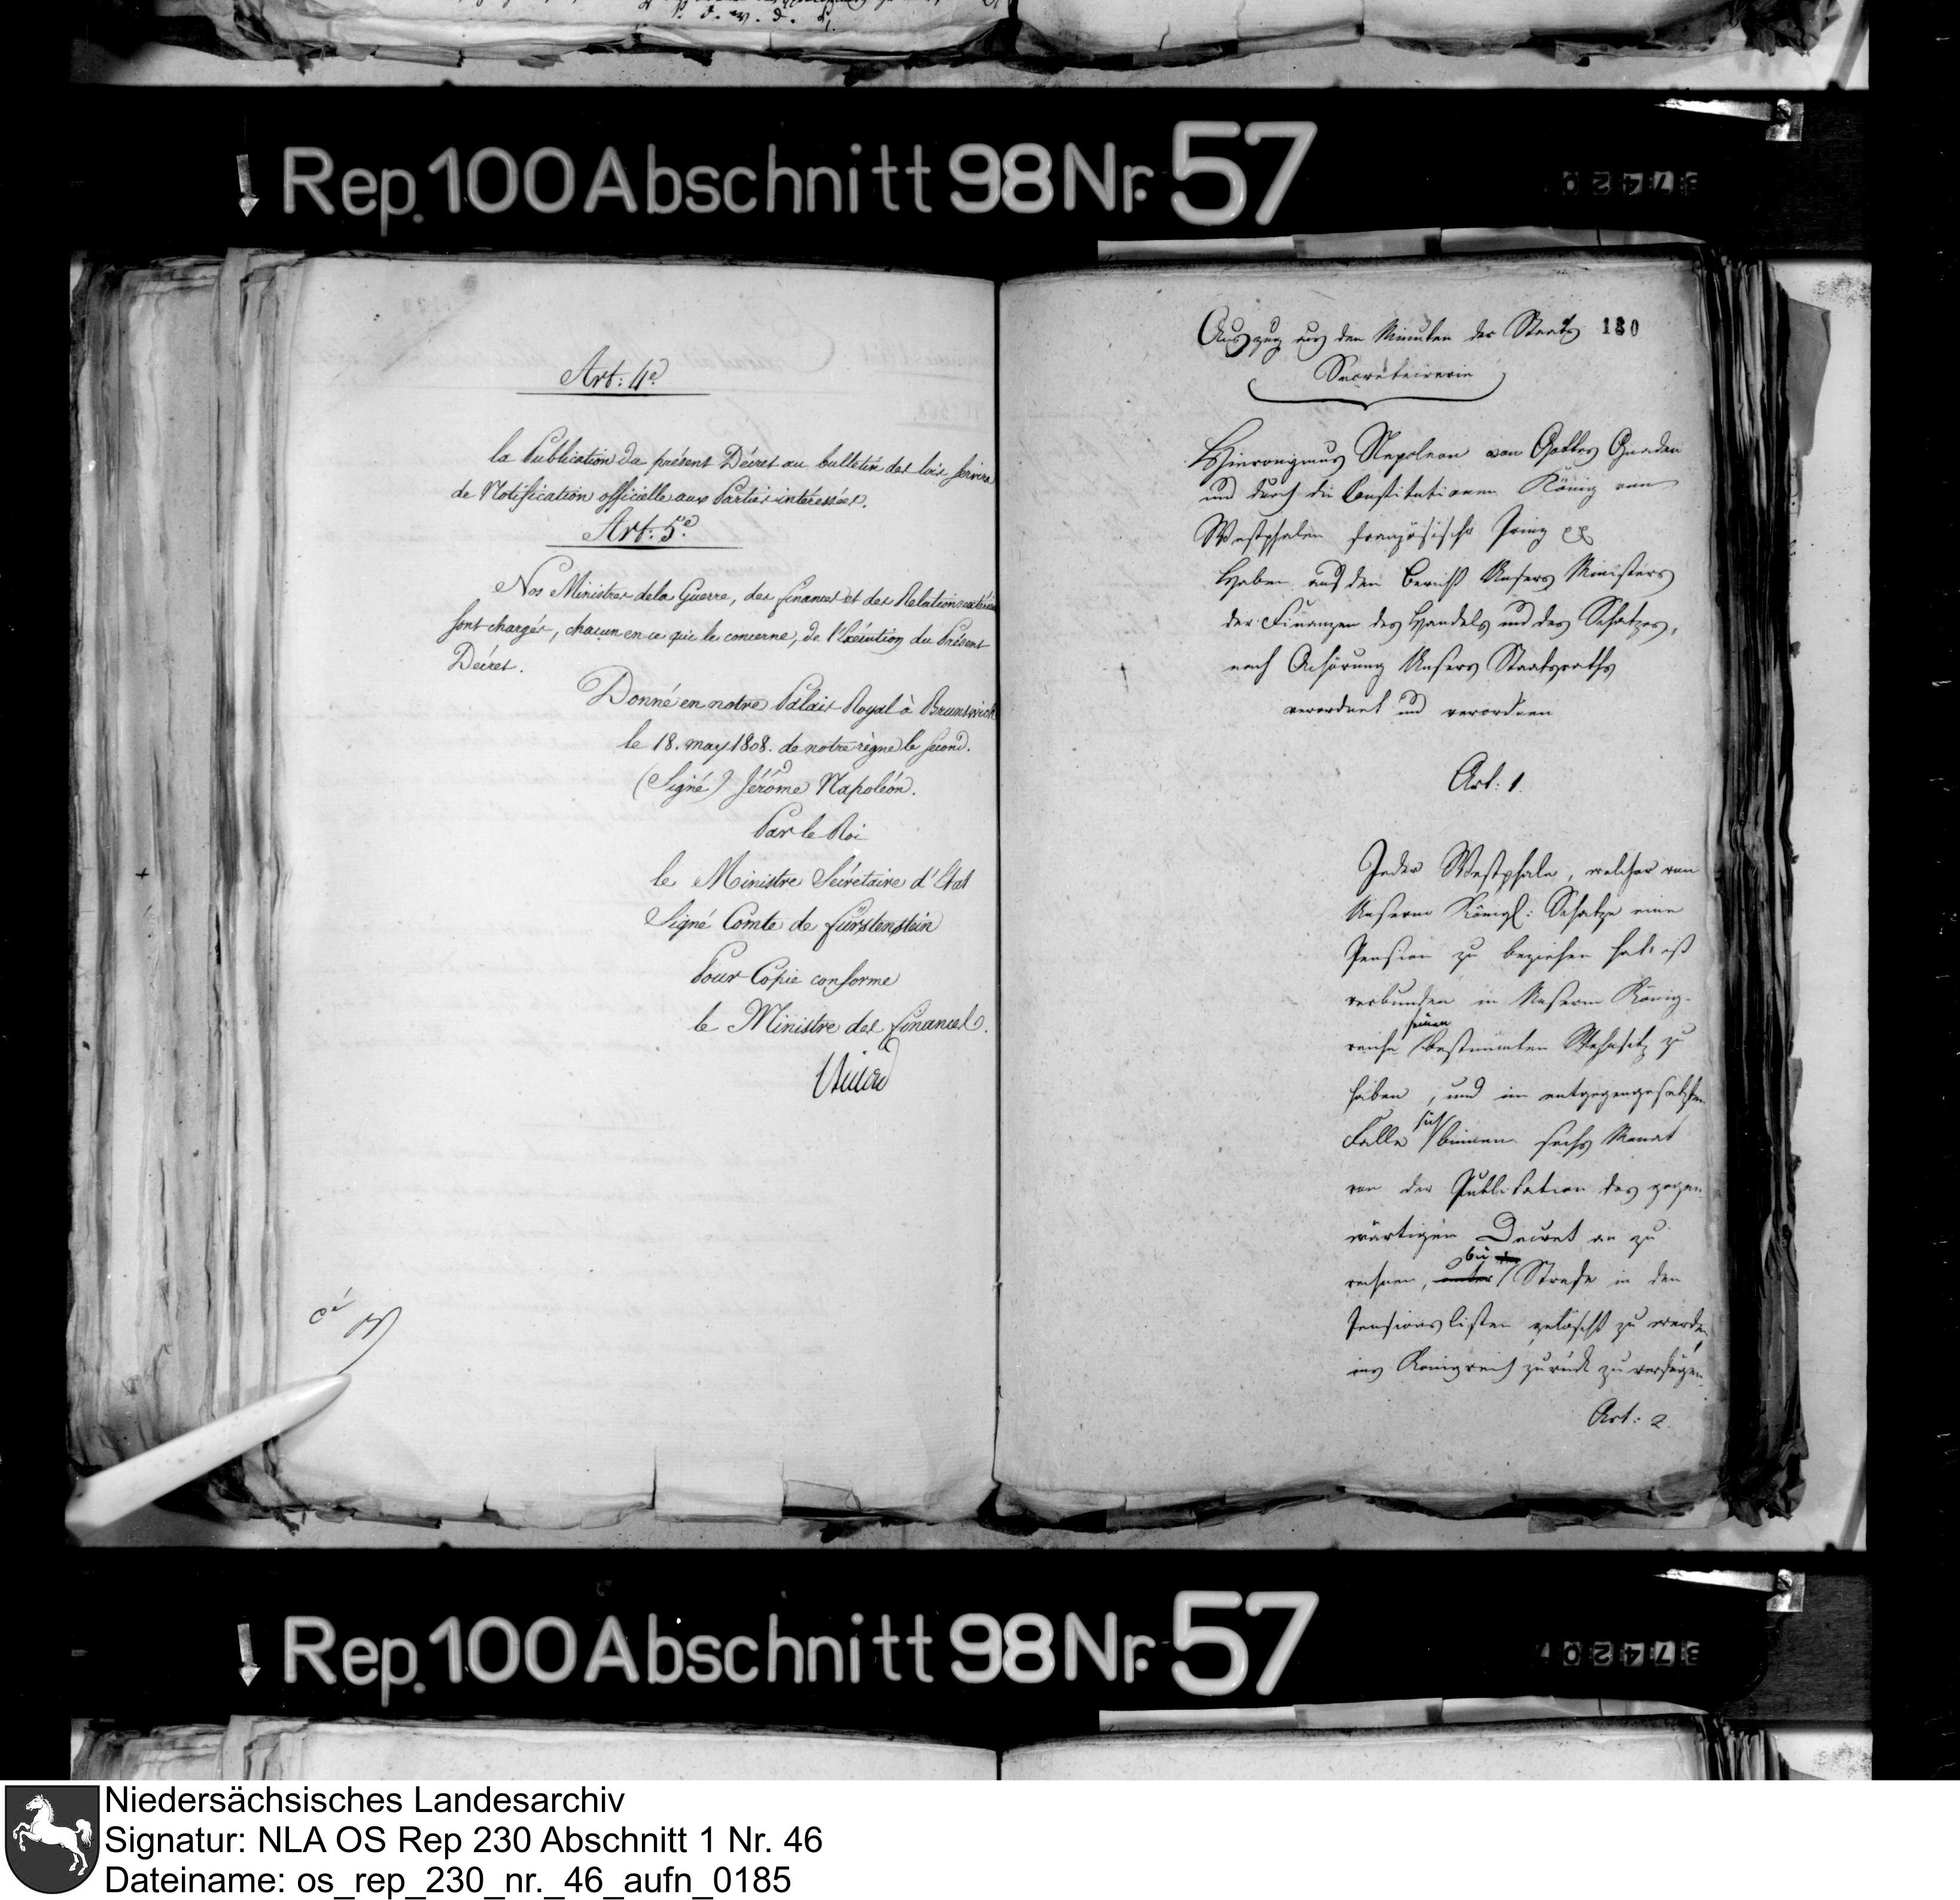 Rep. 100 Abschnitt 98 Nr. 57
Art: 4e.
la Publication du présent Décret au bulletin des lois servira
de Notification officielle aux Parties intéressées.
Art: 5e.
Nos Ministres de la Guerre, des finances et des Relations extérieures
sont chargés, chacun en ce qui le concerne, de l'Exécution du Présent
Décret.
Donné en notre Palais Royal à Brunswick
le 18. may 1808. de notre règne le second.
(Signé) Jérôme Napoléon.
Par le Roi
le Ministre Sécretaire d'Etat
Signé Comte de fürstenstein
Pour Copie conforme
le Ministre des finances.
180
Auszug aus den Minuten der Staats
Secretairerie
Hieronymus Napoleon von Gottes Gnaden
und durch die Constitutionen König von
Westphalen französischer Prinz
Haben auf den Bericht Unsers Ministers
der Finanzen des Handels und des Schatzes,
nach Anhörung Unsers Staatsraths
verordnet und verordnen
Art: 1.
Jeder Westphale, welcher von
Unserm Königl: Schatze eine
Pension zu beziehen hat, ist
verbunden in Unserm König-
reiche seinen bestimmten Wohnsitz zu
haben, und im entgegengesetzten
Falle sich binnen sechs Monat
von der Publikation des gegen
wärtigen Decret an zu
rechnen, unter bei Strafe in den
Pensionslisten gelöscht zu werden,
ins Königreich zurück zu verfügen.
Art: 2.
Rep. 100 Abschnitt 98 Nr. 57
Niedersächsisches Landesarchiv
Signatur: NLA OS Rep 230 Abschnitt 1 Nr. 46
Dateiname: os_rep_230_nr._46_aufn_0185